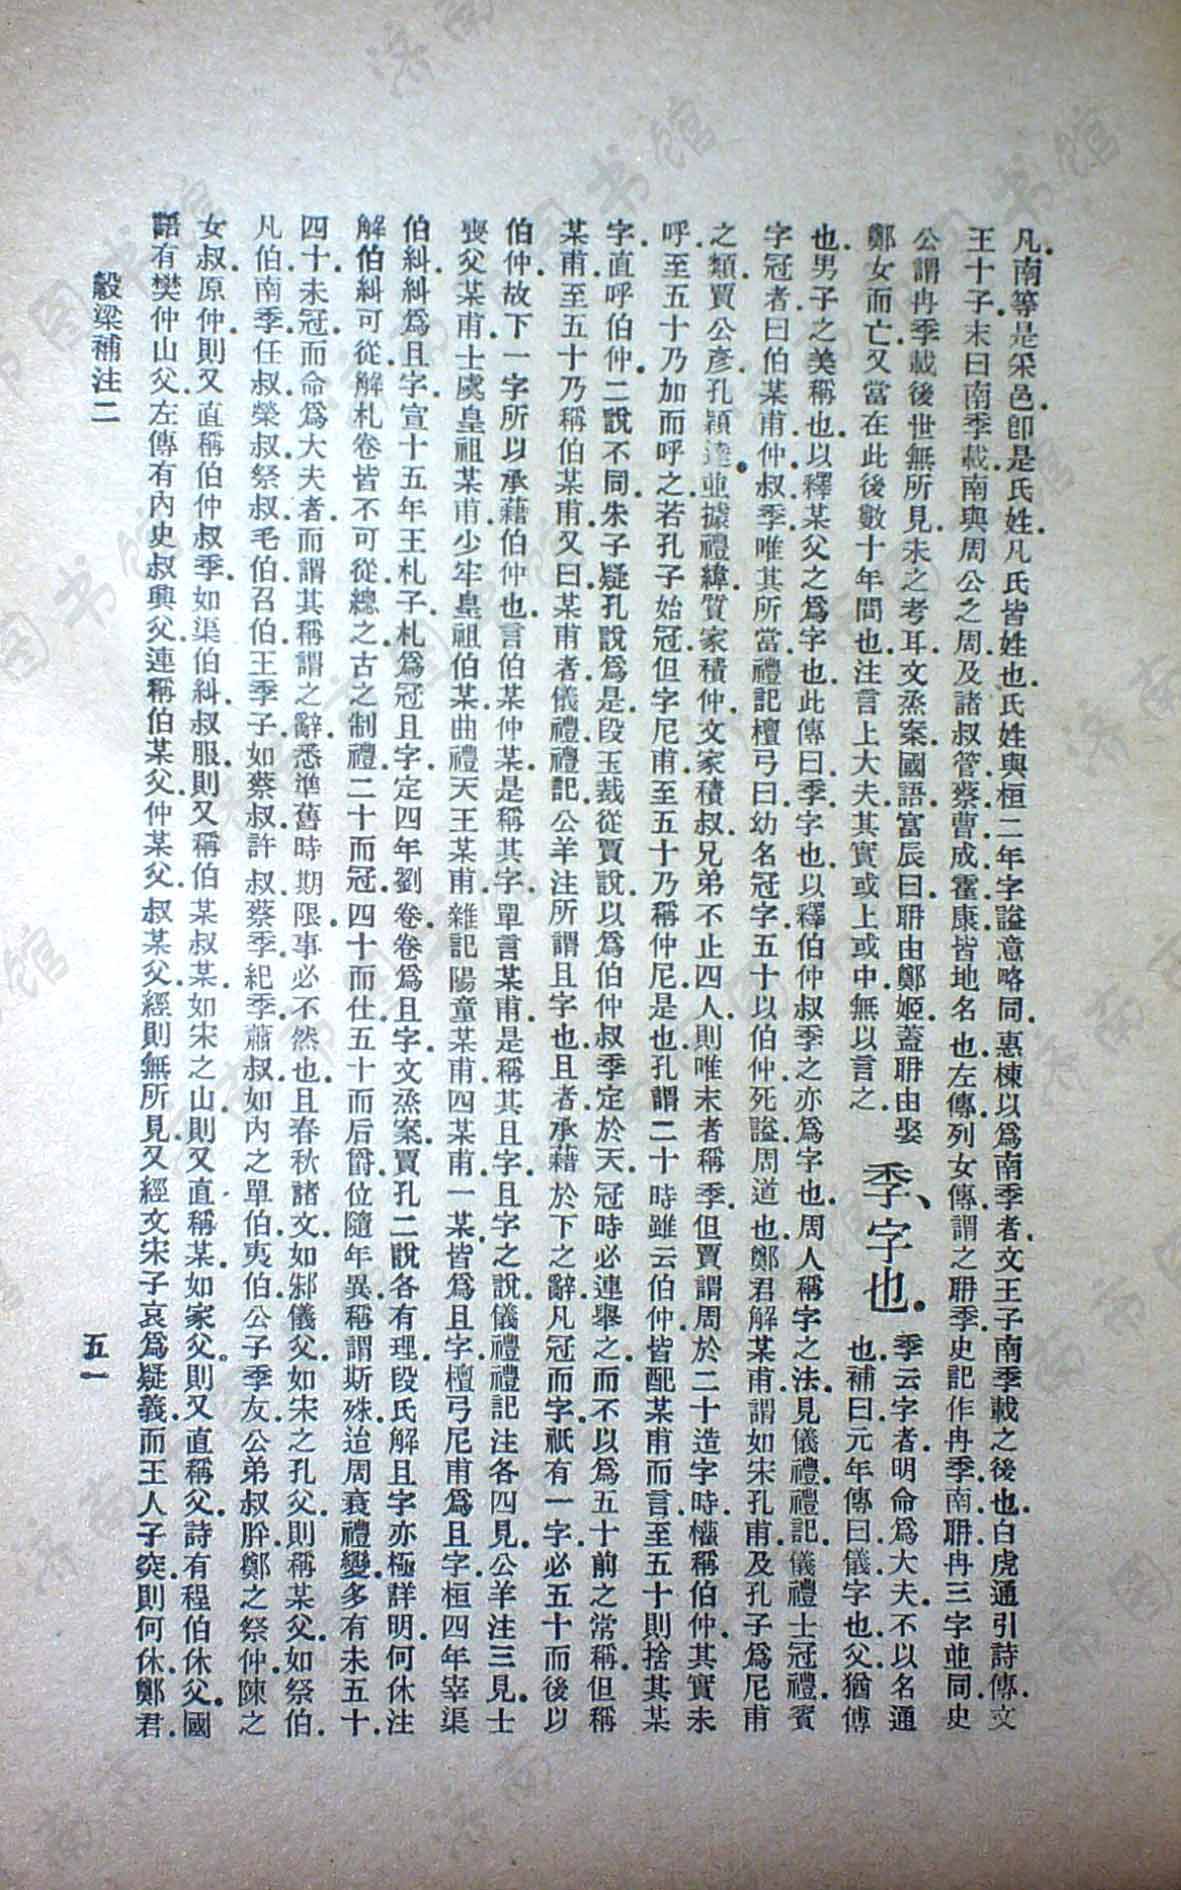 凡南等是采邑卽是氏姓凡氏皆姓也氏姓與桓二年字諡意略同惠棟以爲南季者文王子南季載之後也白虎通引詩傳文
王十子末曰南季載南與周公之周及諸叔管蔡曹成霍康皆地名也左傳列女傳謂之聃季史記作冉季南聃冉三字並同史
公謂冉季載後世無所見未之考耳文烝案國語富辰曰聃由鄭姬蓋聃由娶
鄭女而亡又當在此後數十年間也注言上大夫其實或上或中無以言之
季、字也。
季云字者明命爲大夫不以名通
也補曰元年傳曰儀字也父猶傅
也男子之美稱也以釋某父之爲字也此傳曰季字也以釋伯仲叔季之亦爲字也周人稱字之法見儀禮禮記儀禮士冠禮賓
字冠者曰伯某甫仲叔季唯其所當禮記檀弓曰幼名冠字五十以伯仲死諡周道也鄭君解某甫謂如宋孔甫及孔子爲尼甫
之類賈公彥孔穎達並據禮緯質家積仲文家積叔兄弟不止四人則唯末者稱季但賈謂周於二十造字時權稱伯仲其實未
呼至五十乃加而呼之若孔子始冠但字尼甫至五十乃稱仲尼是也孔謂二十時雖云伯仲皆配某甫而言至五十則捨其某
字直呼伯仲二說不同朱子疑孔說爲是段玉裁從賈說以爲伯仲叔季定於天冠時必連舉之而不以爲五十前之常稱但稱
某甫至五十乃稱伯某甫又曰某甫者儀禮禮記公羊注所謂且字也且者承藉於下之辭凡冠而字祇有一字必五十而後以
伯仲故下一字所以承藉伯仲也言伯某仲某是稱其字單言某甫是稱其且字且字之說儀禮禮記注各四見公羊注三見士
喪父某甫士虞皇祖某甫少牢皇祖伯某曲禮天王某甫雜記陽童某甫四某甫一某皆爲且字檀弓尼甫爲且字桓四年宰渠
伯糾糾爲且字宣十五年王札子札爲冠且字定四年劉卷卷爲且字文烝案賈孔二說各有理段氏解且字亦極詳明何休注
解伯糾可從解札卷皆不可從總之古之制禮二十而冠四十而仕五十而后爵位隨年異稱謂斯殊迨周衰禮變多有未五十
四十未冠而命爲大夫者而謂其稱謂之辭悉準舊時期限事必不然也且春秋諸文如邾儀父如宋之孔父則稱某父如祭伯
凡伯南季任叔榮叔祭叔毛伯召伯王季子如蔡叔許叔蔡季紀季蕭叔如內之單伯夷伯公子季友公弟叔肸鄭之祭仲陳之
女叔原仲則又直稱伯仲叔季如渠伯糾叔服則又稱伯某叔某如宋之山則又直稱某如家父則又直稱父詩有程伯休父國
語有樊仲山父左傳有內史叔興父連稱伯某父仲某父叔某父經則無所見又經文宋子哀爲疑義而王人子突則何休鄭君
穀梁補注二
五一